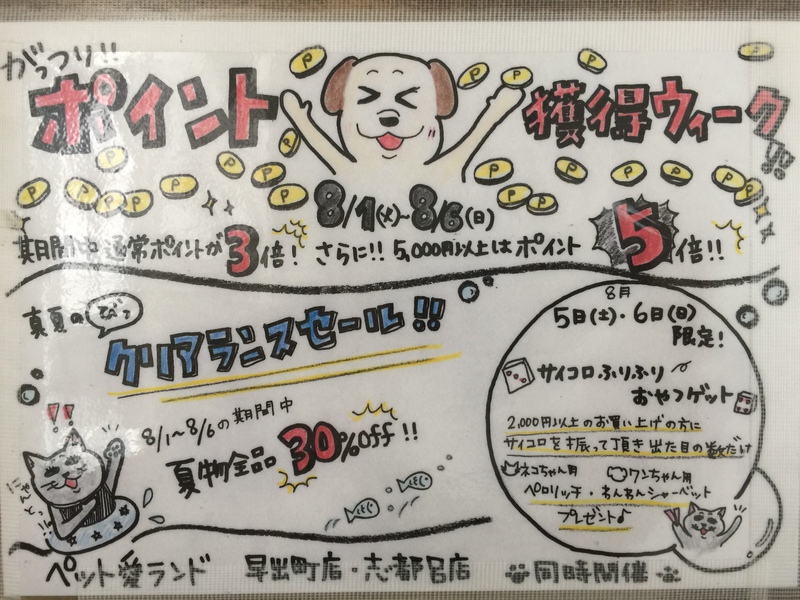 がっつり!!
ポイント獲得ウィーク!!
8/1(火)~8/6(日)
期間中通常ポイントが3倍! さらに!! 5,000円以上はポイント5倍!!
真夏のびっ
クリアランスセール!!
8/1~8/6の期間中
夏物全品30%off!!
8月
5日(土)・6日(日)
限定!
サイコロふりふり
おやつゲット
2,000円以上のお買い上げの方に
サイコロを振って頂き出た目の数だけ
ネコちゃん用 ワンちゃん用
ペロリッチ・わんわんシャーベット
プレゼント♪
ペット愛ランド 早出町店・志都呂店 同時開催